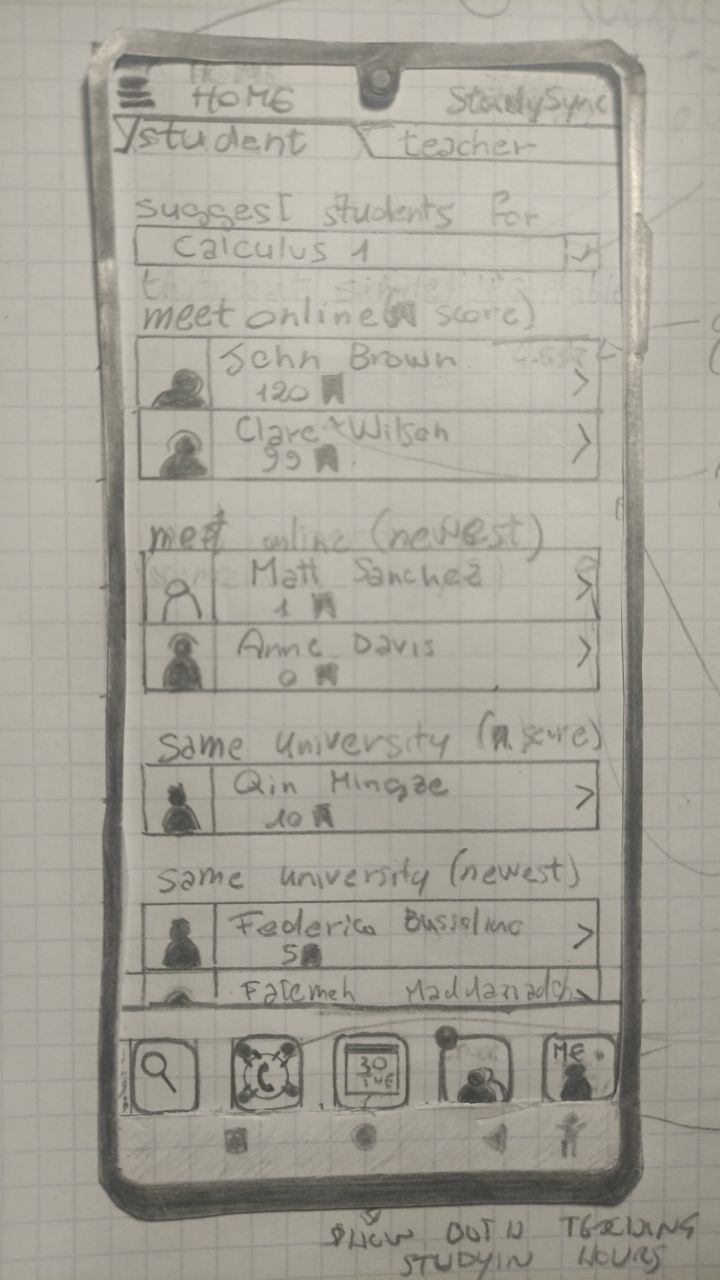 HOME StudySync
student teacher
suggest students for
Calculus 1
meet online ( score)
John Brown
120
Clare Wilson
99
meet online (newest)
Matt Sanchez
1
Anne Davis
0
same university ( score)
Qin Mingze
10
same university (newest)
Federica
5
Fatemeh
30
TUE
ME
SHOW BOTH TEACHING
STUDYIN HOURS